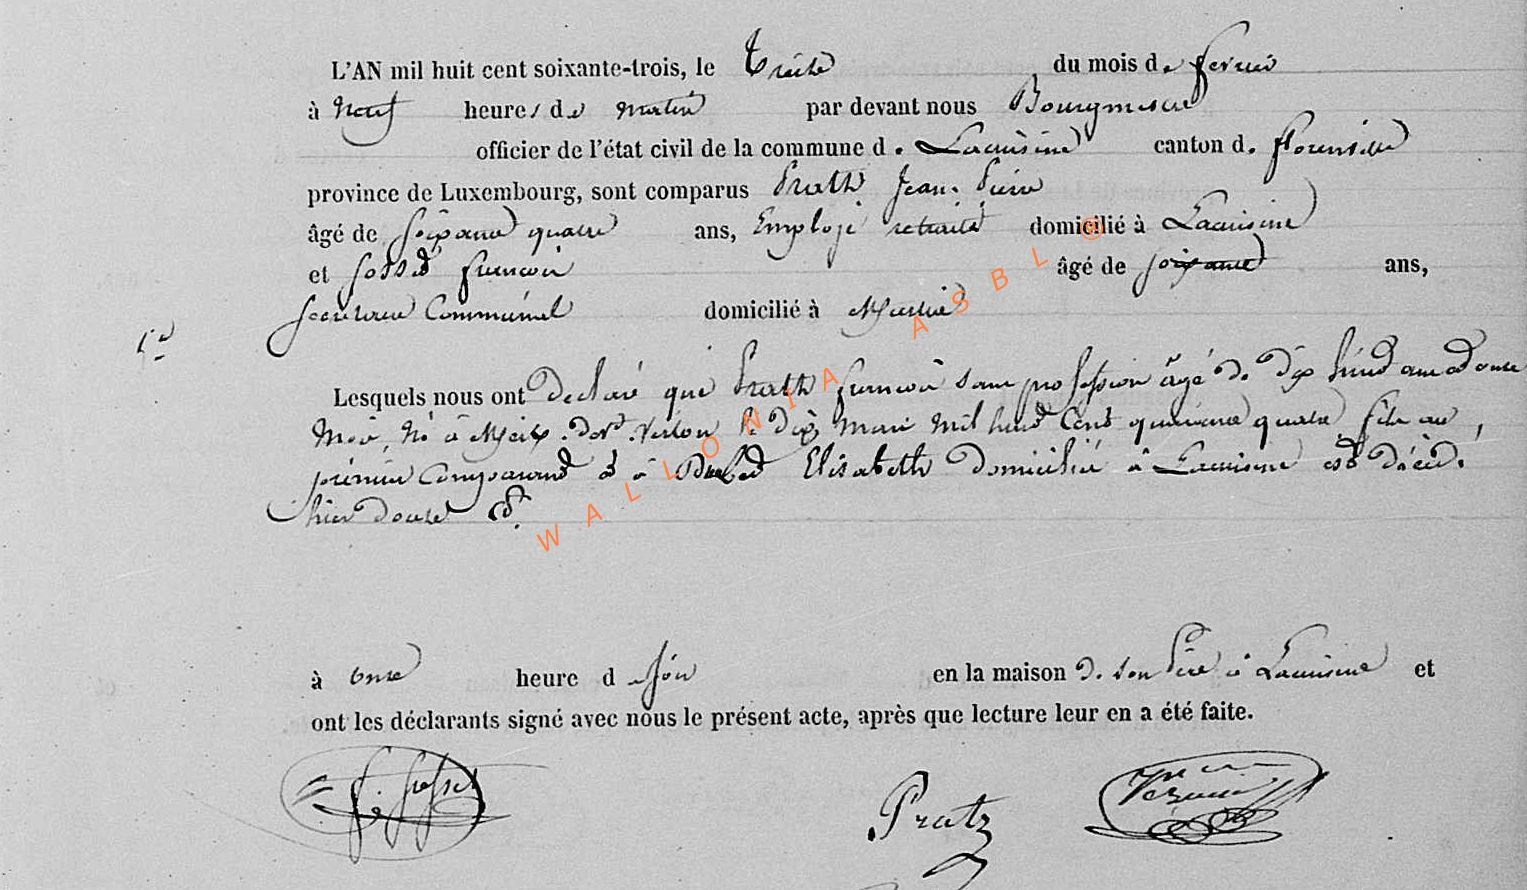 L'AN mil huit cent soixante-trois, le treise du mois de fevrier
à Neuf heures de matin par devant nous Bourgmestre
officier de l'état civil de la commune de Lacuisine canton de florenville
province de Luxembourg, sont comparus Prath Jean. Pierre
âgé de soixante quatre ans, Employé retraité domicilié à Lacuisine
et Gosset françois âgé de soixante ans,
secretaire Communal domicilié à
Lesquels nous ont Declaré que Prath françois sans profession âgé de dix huit ans donze
Mois, Né à Meix. dev. Virton le dix mars mil huit Cent quarante quatre fils au
prémier Comparant et à Elisabeth domicilié à Lacuisine est décédé
hier douse Ct.
à onse heure d en la maison de son Père à Lacuisine et
ont les déclarants signé avec nous le présent acte, après que lecture leur en a été faite.
f. Gosset Pratz
WALLONIA ASBL ©